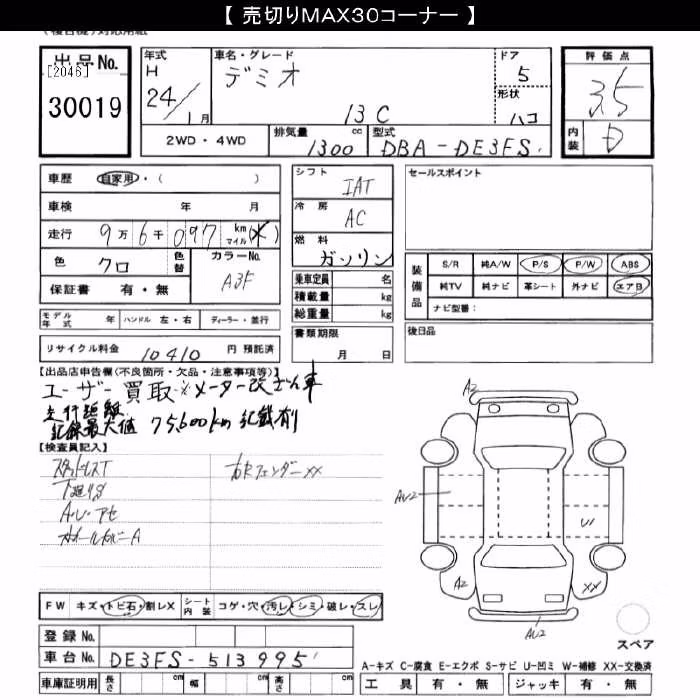 【 売切りMAX30コーナー 】
出品No.
[2046]
30019
年式 H 24/1月
車名・グレード デミオ 13C
ドア 5
形状 ハコ
評価点 3.5
内装 D
2WD・4WD
排気量 1300 cc
型式 DBA-DE3FS
車歴 自家用・( )
車検 年 月
走行 9万6千097 km マイル (✕)
色 クロ 色替
カラーNo. A3F
保証書 有・無
シフト IAT
冷房 AC
燃料 ガソリン
乗車定員 名
積載量 kg
総重量 kg
セールスポイント
装備品 S/R 純A/W P/S P/W ABS
純TV 純ナビ 革シート 外ナビ エアB
ナビ型番:
モデル年式 年 ハンドル 左・右 ディーラー・並行
リサイクル料金 10410 円 預託済
書類期限 月 日
後日品
【出品店申告欄(不良箇所・欠品・注意事項等)】
ユーザー買取 ※メーター改ざん車
走行距離
記録最大値 75,600km 記載有り
【検査員記入】
スタッドレスT
下廻りS
A・U・アセ
右Fフェンダーxx
ホイールカバーA
A2
AU2
U
A2
XX
AU2
スペア
FW キズ・トビ石・割レX シート内装 コゲ・穴・汚レ・シミ・破レ・スレ
登録No.
車台No. DE3FS-513995
車庫証明用 長さ cm 幅 cm 高さ cm
A-キズ C-腐食 E-エクボ S-サビ U-凹ミ W-補修 XX-交換済
工具 有・無 ジャッキ 有・無